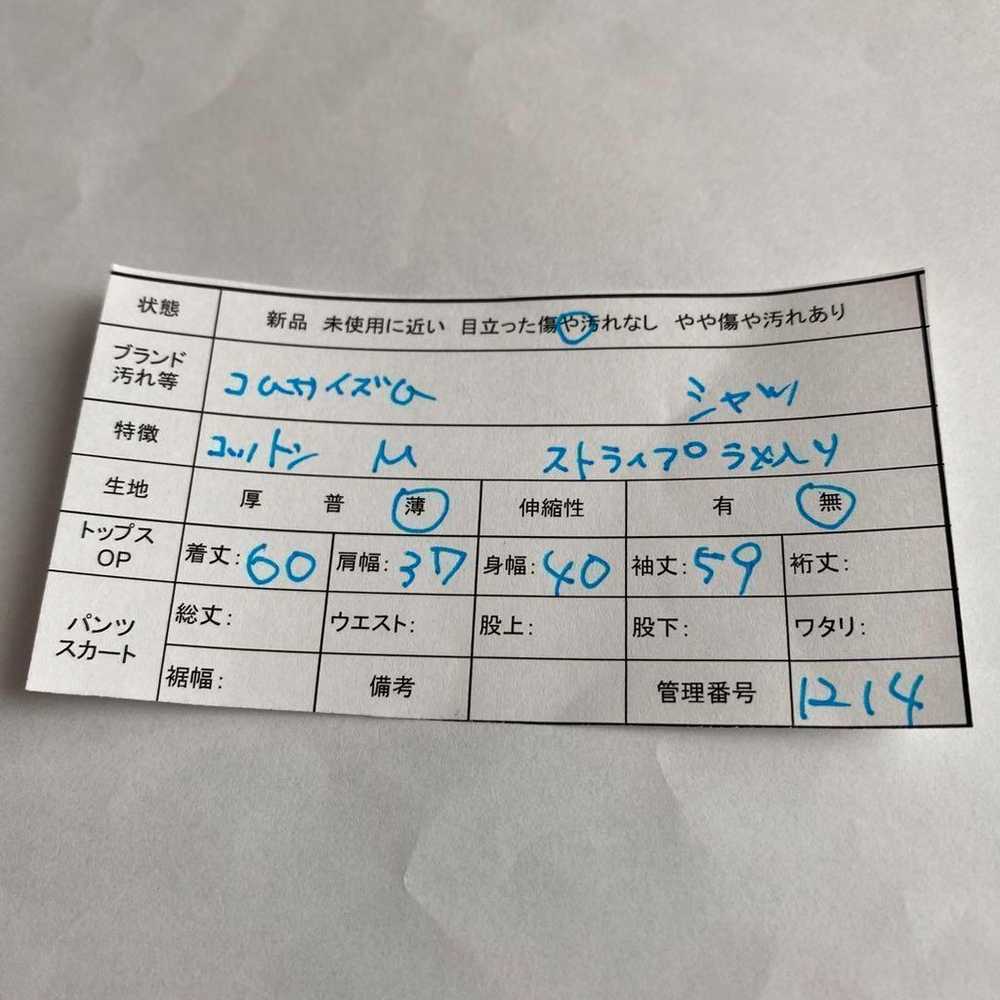 状態 新品 未使用に近い 目立った傷や汚れなし やや傷や汚れあり
ブランド
汚れ等 コムサイズム シャツ
特徴 コットン M ストライプラメ入り
生地 厚 普 薄 伸縮性 有 無
トップス
OP 着丈:60 肩幅:37 身幅:40 袖丈:59 裄丈:
パンツ
スカート 総丈: ウエスト: 股上: 股下: ワタリ:
裾幅: 備考 管理番号 1214